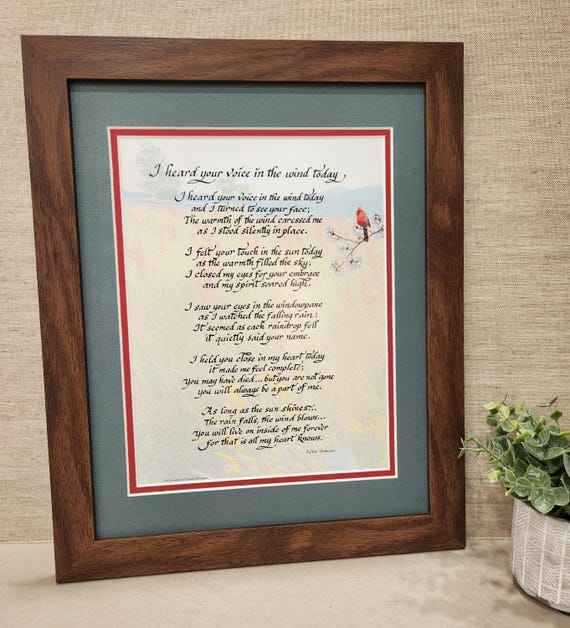 I heard your voice in the wind today
I heard your voice in the wind today
and I turned to see your face;
The warmth of the wind caressed me
as I stood silently in place.
I felt your touch in the sun today
as the warmth filled the sky;
I closed my eyes for your embrace
and my spirit soared high.
I saw your eyes in the windowpane
as I watched the falling rain;
It seemed as each raindrop fell
it quietly said your name.
I held you close in my heart today
it made me feel complete;
You may have died...but you are not gone
you will always be a part of me.
As long as the sun shines...
The rain falls, the wind blows...
You will live on inside of me forever
for that is all my heart knows.